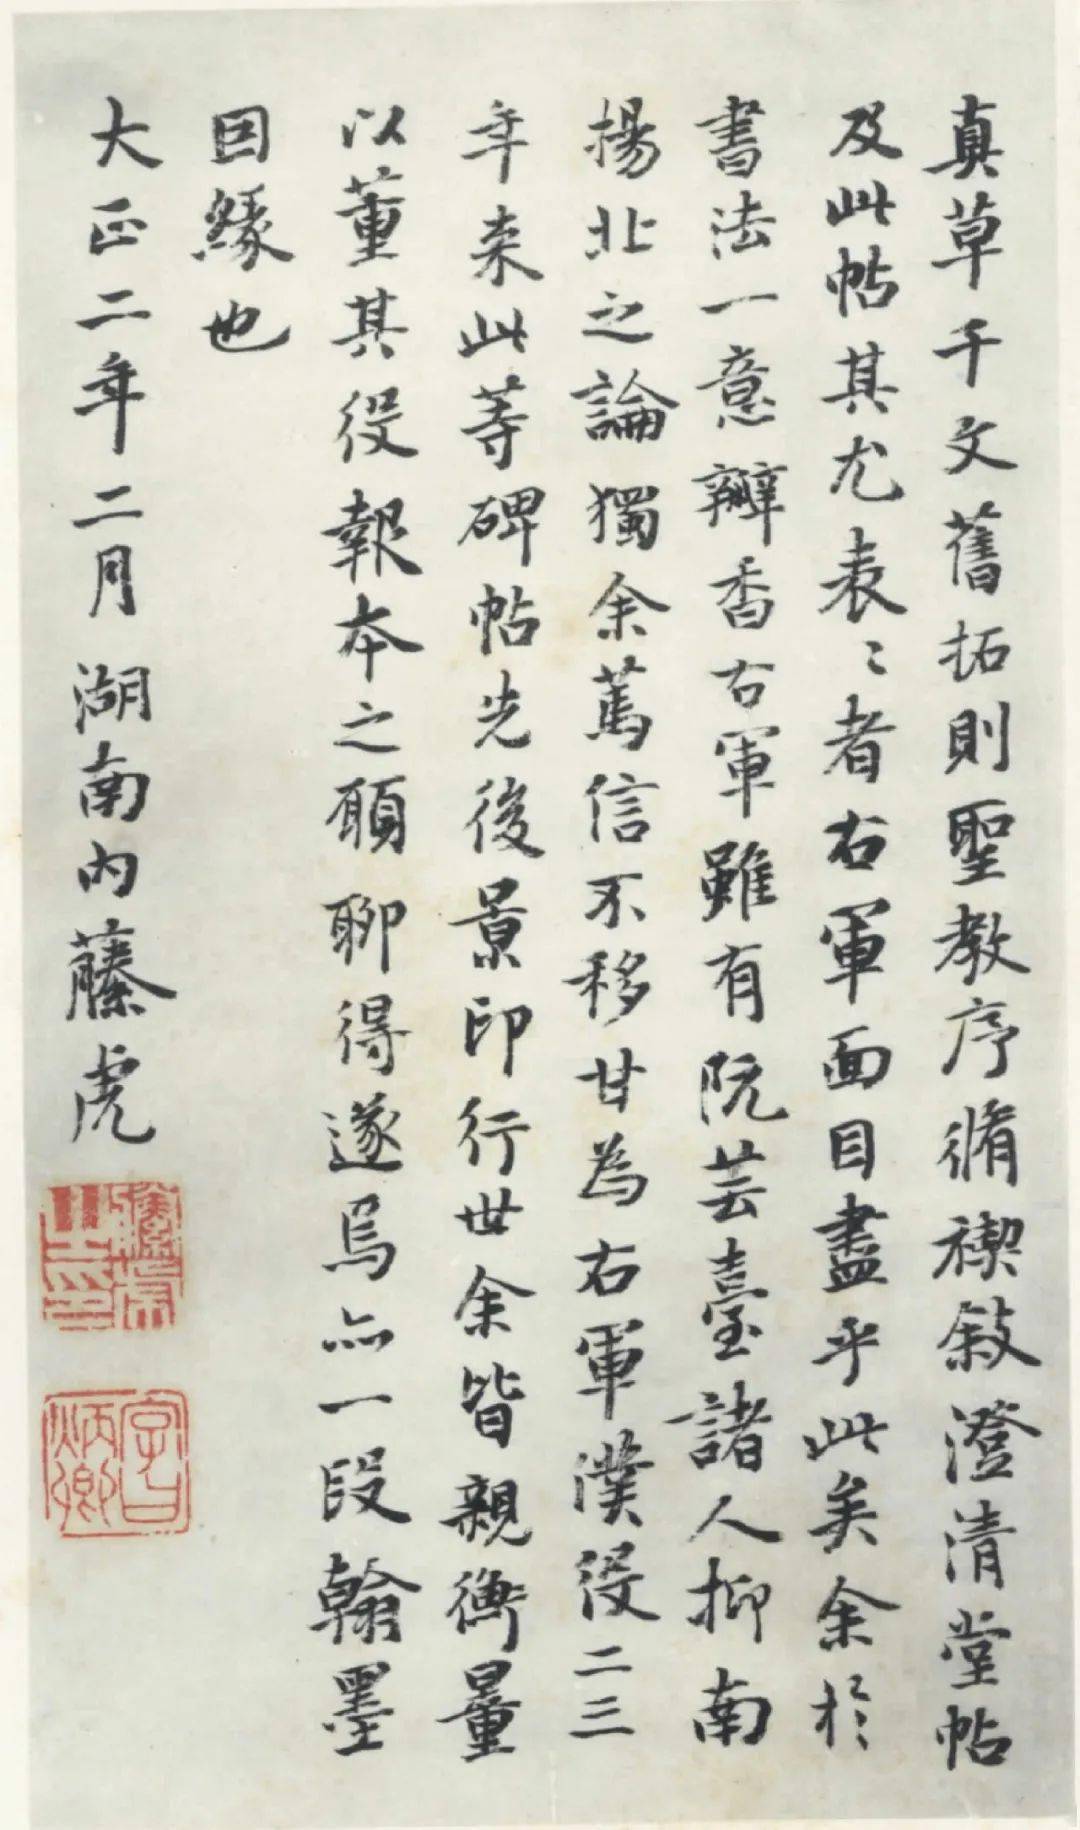 真草千文舊拓則聖教序脩禊敍澄清堂帖
及此帖其尤表〻者右軍面目盡乎此矣余於
書法一意瓣香右軍雖有阮芸臺諸人抑南
揚北之論獨余篤信不移甘為右軍濮役二三
年来此等碑帖先後景印行世余皆親衡量
以董其役報本之願聊得遂焉亦一段翰墨
因緣也
大正二年二月湖南內藤虎
藤虎之印
字曰炳卿